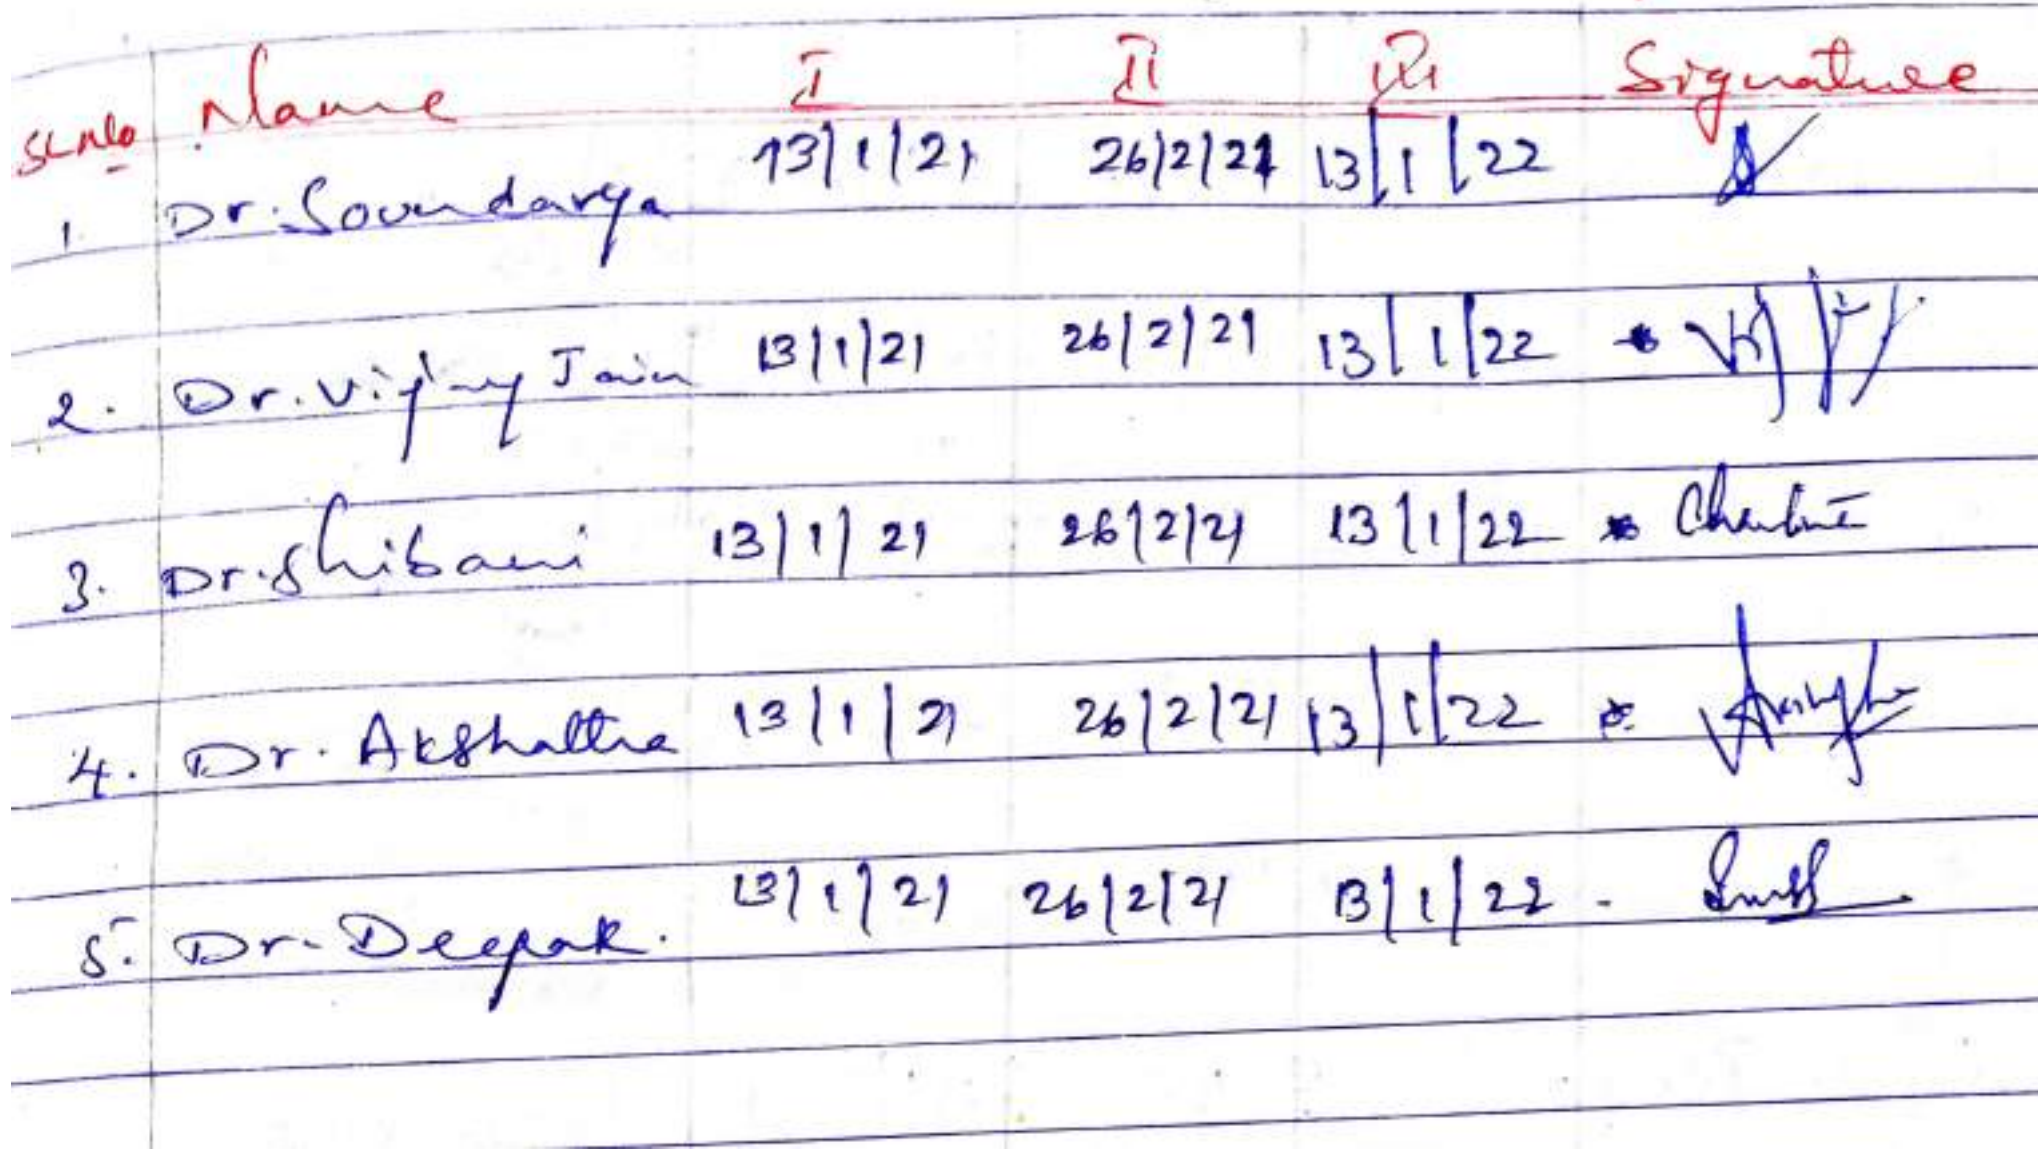 SL No Name I II III Signature
1. Dr. Soundarya 13/1/21 26/2/21 13/1/22
2. Dr. Vijay Jain 13/1/21 26/2/21 13/1/22
3. Dr. Shibani 13/1/21 26/2/21 13/1/22
4. Dr. Akshattha 13/1/21 26/2/21 13/1/22
5. Dr. Deepak. 13/1/21 26/2/21 13/1/22 -